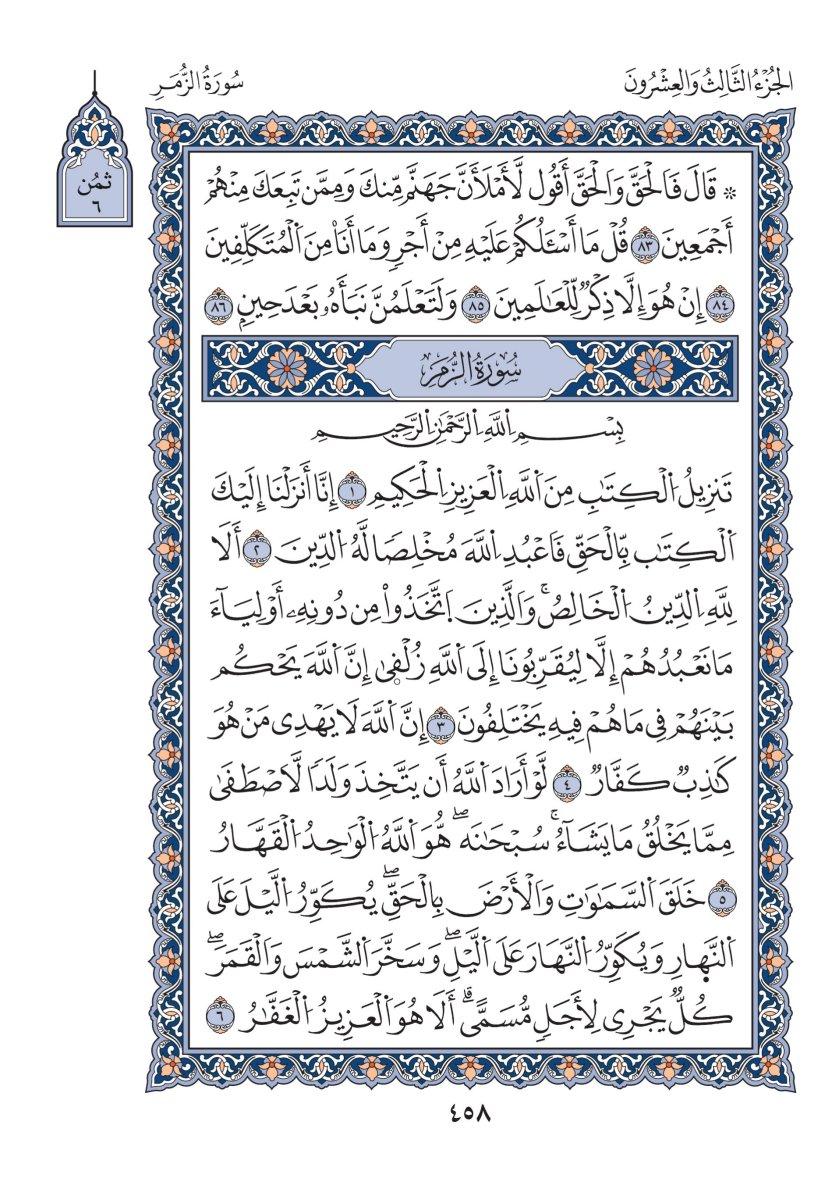 الجُزْءُ الثَّالِثُ وَالعِشْرُونَ
سُورَةُ الزُّمَرِ
ثمُن
٦
* قَالَ فَالْحَقَّ وَالْحَقَّ أَقُول لَّأَمْلَأَنَّ جَهَنَّم مِّنكَ وَمِمَّن تَبِعَكَ مِنْهُمْ
أَجْمَعِينَ ٨٣ قُلْ مَا أَسْـَٔلُكُمْ عَلَيْهِ مِنْ أَجْرٍ وَمَا أَنَا۠ مِنَ الْمُتَكَلِّفِينَ
٨٤ إِنْ هُوَ إِلَّا ذِكْرٌ لِّلْعَٰلَمِينَ ٨٥ وَلَتَعْلَمُنَّ نَبَأَهُۥ بَعْدَ حِينٍ ٨٦
سُورَةُ الزُّمَرِ
بِسْمِ اللَّهِ الرَّحْمَٰنِ الرَّحِيمِ
تَنزِيلُ الْكِتَٰبِ مِنَ اللَّهِ الْعَزِيزِ الْحَكِيمِ ١ إِنَّا أَنزَلْنَا إِلَيْكَ
الْكِتَٰب بِّالْحَقِّ فَاعْبُدِ اللَّهَ مُخْلِصًا لَّهُ الدِّينَ ٢ أَلَا
لِلَّهِ الدِّينُ الْخَالِصُۚ وَالَّذِينَ اتَّخَذُواْ مِن دُونِهِۦ أَوْلِيَآءَ
مَا نَعْبُدُهُمْ إِلَّا لِيُقَرِّبُونَا إِلَى اللَّهِ زُلْفٜىٰ إِنَّ اللَّهَ يَحْكُم
بَيْنَهُمْ فِي مَا هُمْ فِيهِ يَخْتَلِفُونَ ٣ إِنَّ اللَّهَ لَا يَهْدِي مَنْ هُوَ
كَٰذِبٌ كَفَّارٌ ٤ لَّوْ أَرَادَ اللَّهُ أَن يَتَّخِذَ وَلَدًا لَّاصْطَفَىٰ
مِمَّا يَخْلُقُ مَا يَشَآءُۚ سُبْحَٰنَهۖ هُّوَ اللَّهُ الْوَٰحِدُ الْقَهَّارُ
٥ خَلَقَ السَّمَٰوَٰتِ وَالْأَرْضَ بِالْحَقِّۖ يُكَوِّرُ الَّيْلَ عَلَى
النَّهٜارِ وَيُكَوِّرُ النَّهَارَ عَلَى الَّيْلِۖ وَسَخَّرَ الشَّمْسَ وَالْقَمَرَۖ
كُلٌّ يَجْرِي لِأَجَلٍ مُّسَمًّىۗ أَلَا هُوَ الْعَزِيزُ الْغَفَّٰرُ ٦
٤٥٨